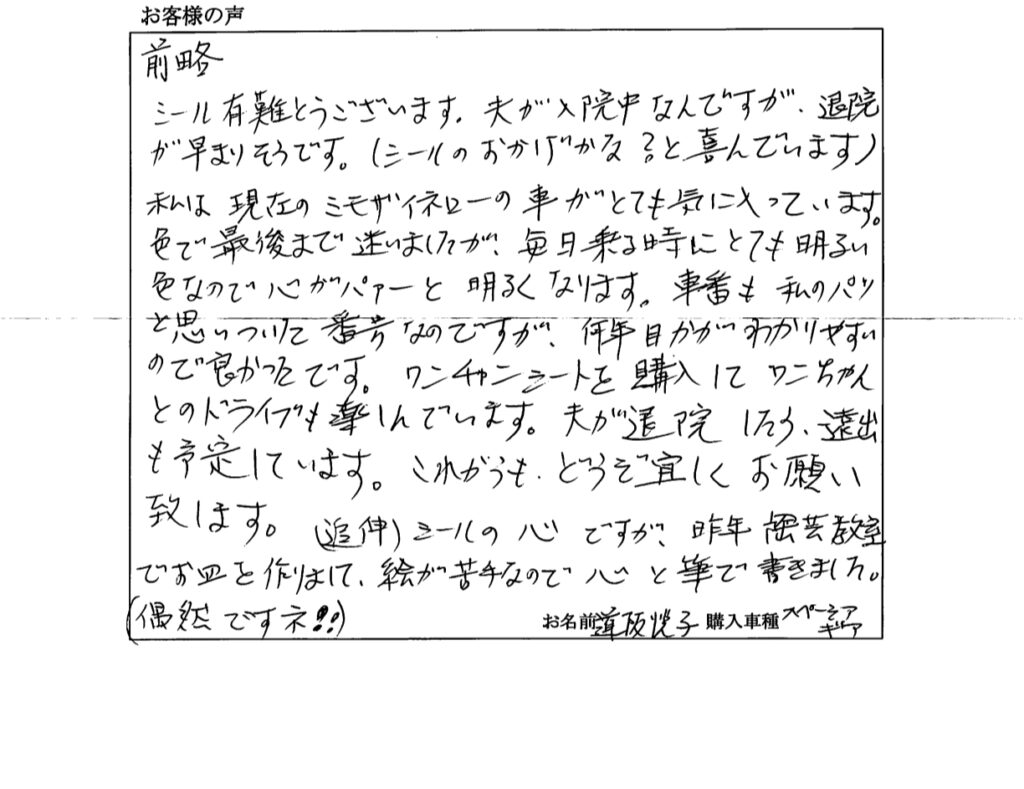 お客様の声
前略
シール有難とうございます。夫が入院中なんですが、退院
が早まりそうです。(シールのおかげかな?と喜んでいます)
私は現在のミモザイネローの車がとても気に入っています。
色で最後まで迷いましたが、毎日乗る時にとても明るい
色なので心がパァーと明るくなります。車番も私のパッ
と思いついた番号なのですが、何年目かがわかりやすい
ので良かったです。ワンチャンシートを購入してワンちゃん
とのドライブも楽しんでいます。夫が退院したら、遠出
も予定しています。これからも、どうぞ宜しくお願い
致します。(追伸)シールの心ですが、昨年陶芸教室
でお皿を作りまして、絵が苦手なので心と筆で書きました。
(偶然ですネ!!)
お名前 道阪悦子 購入車種 スペーシア
ギア